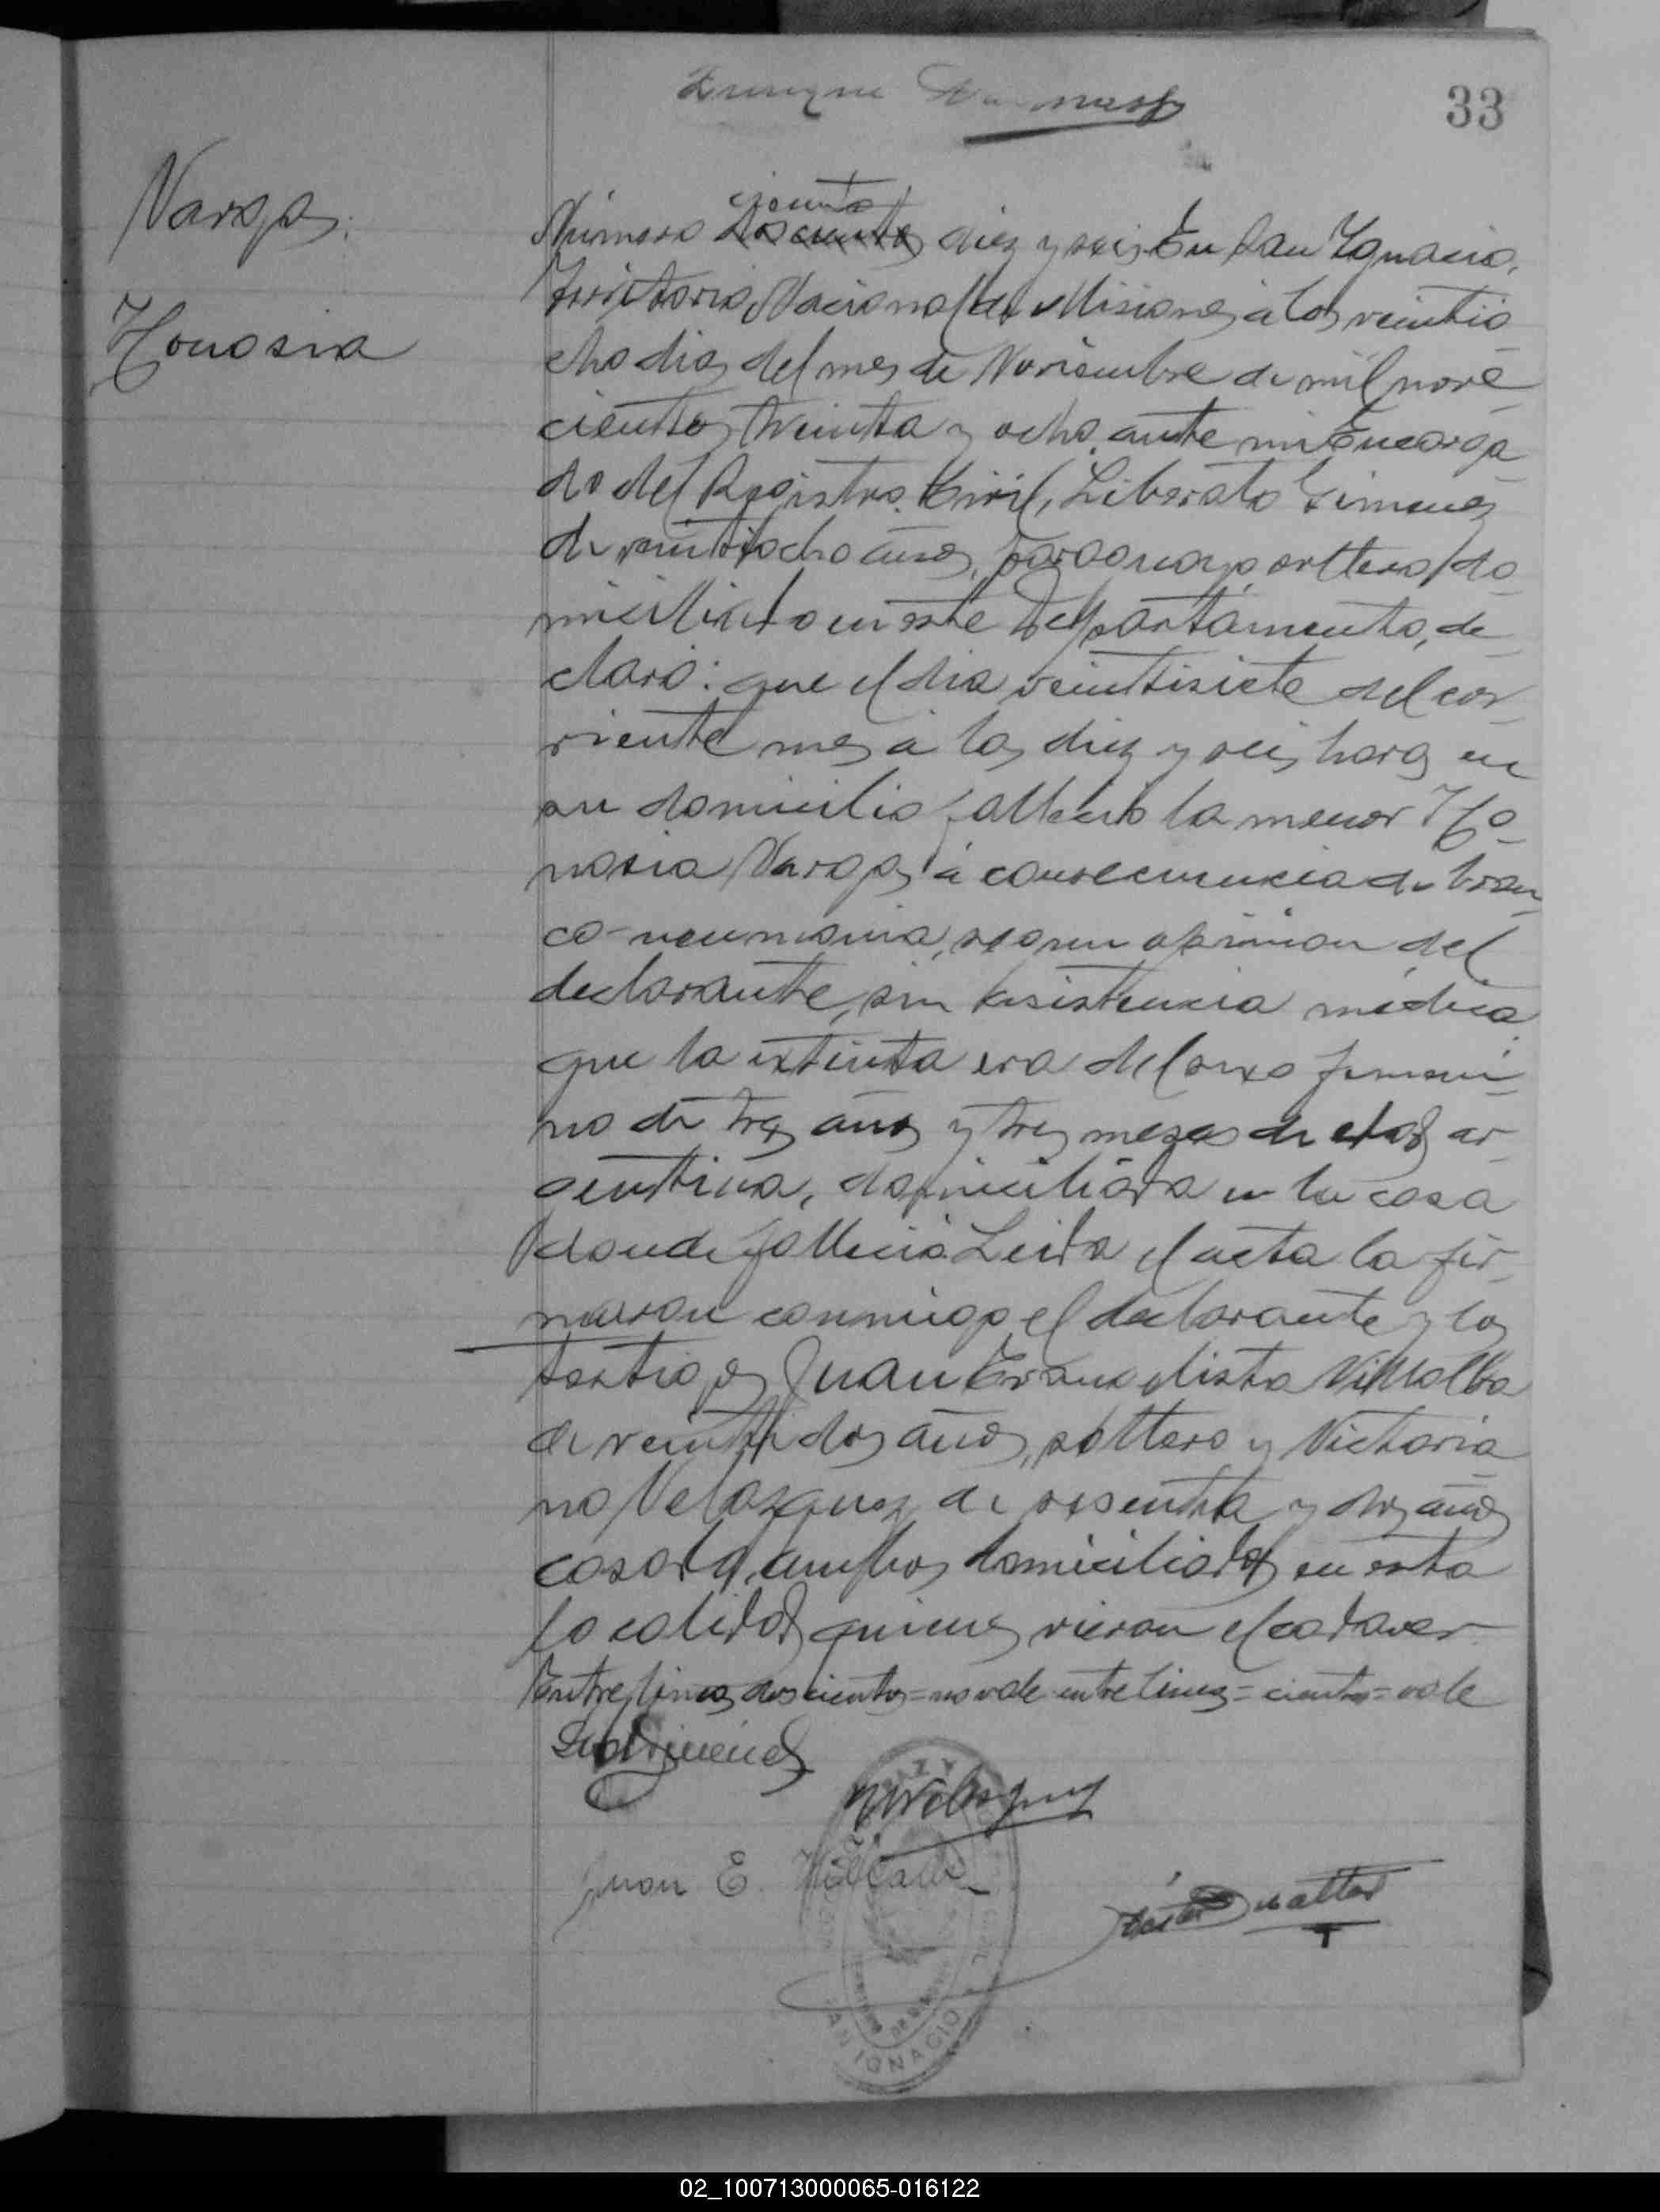 Enrique
33
Vargas
Honosia
Número doscientos ciento diez y seis. En San Ignacio,
Territorio Nacional de Misiones, a los veintio
cho dias del mes de Noviembre de mil nove
cientos treinta y ocho, ante mi Encarga
do del Registro Civil, Liberato Gimenez
de veintiocho años, paraguayo, soltero, do
miciliado en este Departamento, de
claró: que el dia veintisiete del cor
riente mes á las diez y seis horas en
su domicilio falleció la menor Ho
nosia Vargas á consecuencia de bron
co-neumonia, segun opinion del
declarante, sin asistencia médica
que la extinta era del sexo femeni
no de tres años y tres meses de edad, ar
gentina, domiciliada en la casa
donde falleció. Leida el acta la fir
maron conmigo, el declarante y los
testigos Juan Evangelista Villalba
de veintidos años, soltero y Victoria
no Velazquez de sesenta y dos años
casado, ambos domiciliados en esta
localidad quienes vieron el cadaver
Entre lineas doscientos = no vale entre lineas = ciento = vale
Gimenez
Velazquez
Juan E. Villalba
SAN IGNACIO
02_100713000065-016122